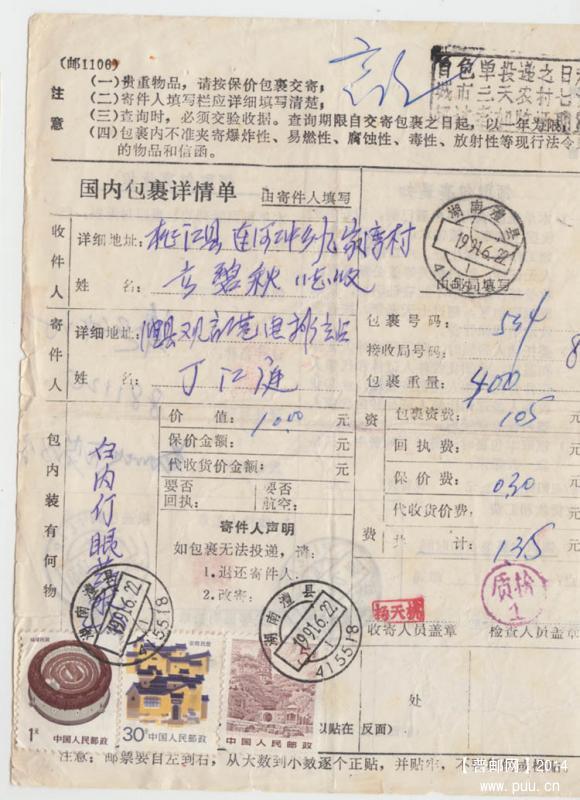 (邮1106)
注意
(一)贵重物品，请按保价包裹交寄；
(二)寄件人填写栏应详细填写清楚；
(三)查询时，必须交验收据。查询期限自交寄包裹之日起，以一年为限；
(四)包裹内不准夹寄爆炸性、易燃性、腐蚀性、毒性、放射性等现行法令
的物品和信函。
单投递之日
城市三天农村七
国内包裹详情单 由寄件人填写
湖南澧县
1991.6.22
收件人
详细地址：桃江县
姓 名： 碧秋 收
由邮局填写
寄件人
详细地址：澧县观 电排站
姓 名：丁江庭
包裹号码：534
接收局号码： 8
包裹重量：400
包内装有何物
白内仃眼药水
价 值：10.00 元
保价金额： 元
代收货价金额： 元
要否回执：
要否航空：
资费
包裹资费：105 元
回执费： 元
保价费：030 元
代收货价费： 元
共 计：135 元
寄件人声明
如包裹无法投递，请：
1.退还寄件人
2.改寄：
湖南澧县
1991.6.22
1
415518
湖南澧县
1991.6.22
1
415518
质检
1
杨天桃
收寄人员盖章
检查人员盖章
福建民居
1分
中国人民邮政
安徽民居
30分
中国人民邮政
中国人民邮政
处
以贴在反面)
注意：邮票要自左到右，从大数到小数逐个正贴，并贴牢，不要
【普邮网】2014
www.puu.cn